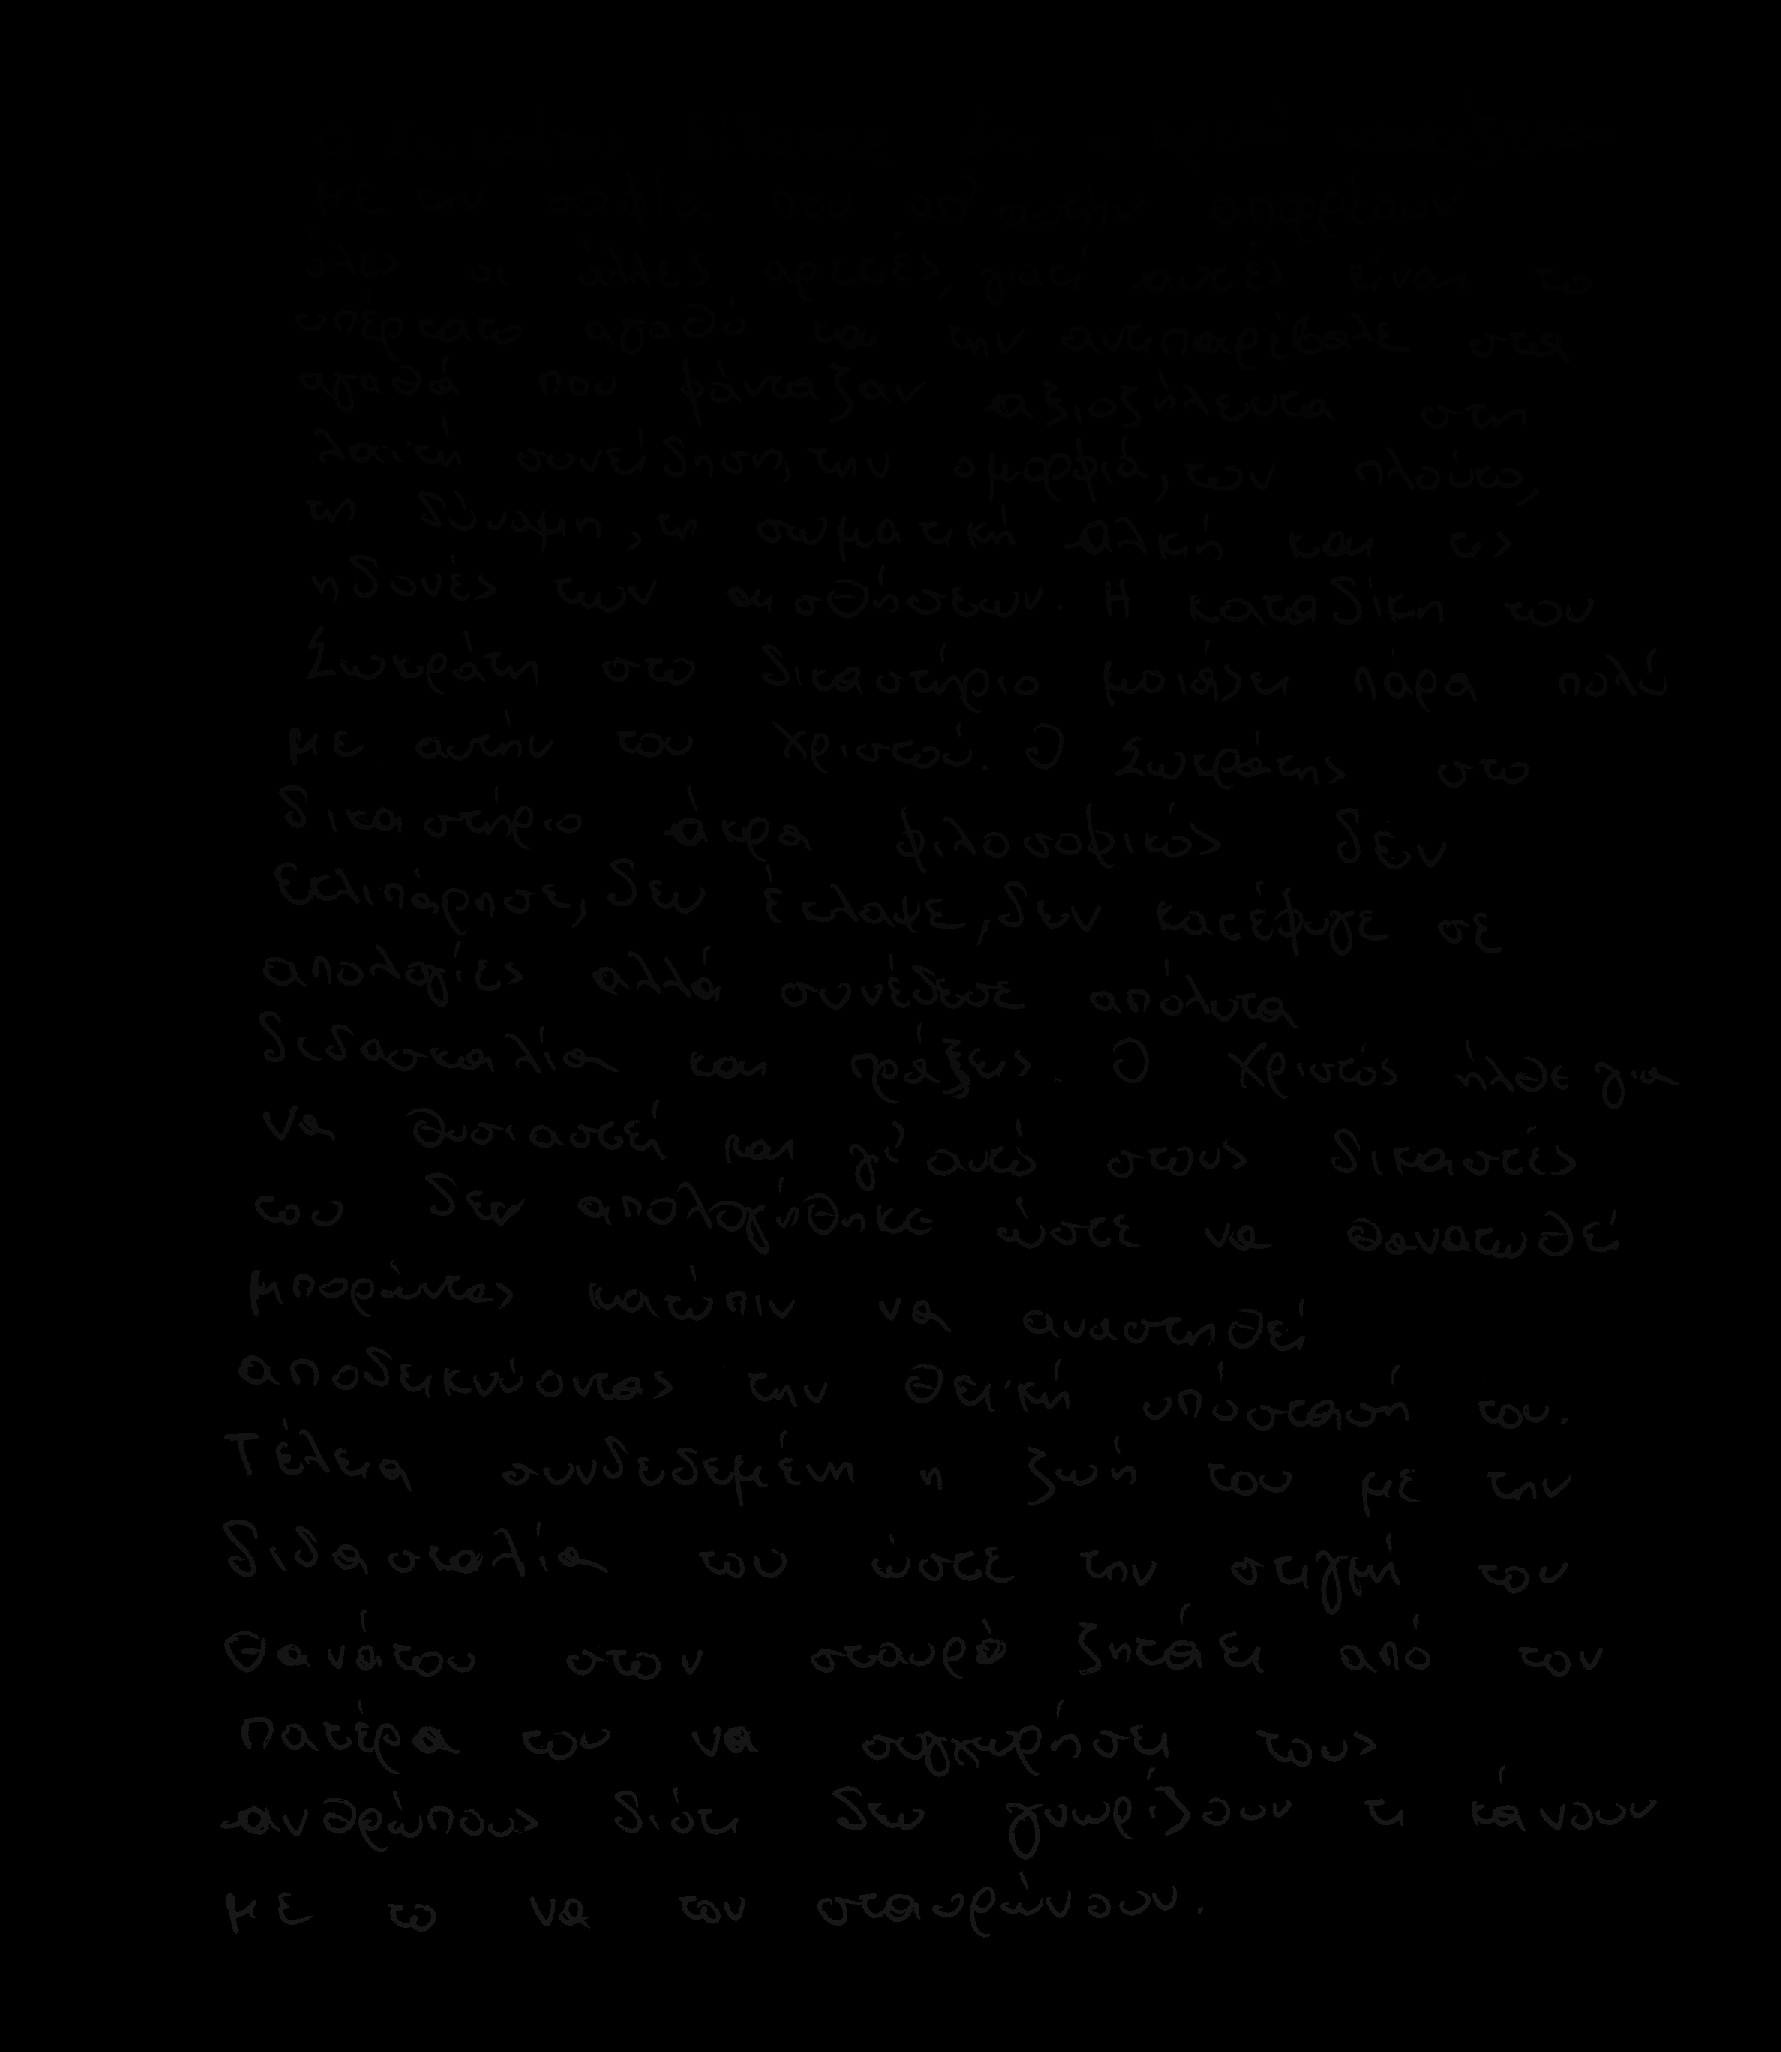 με την σοφία που απ' αυτήν απορρέουν
όλες οι άλλες αρετές, γιατί αυτές είναι το
υπέρτατο αγαθό και την αντιπαρέβαλε στα
αγαθά που φάνταζαν αξιοζήλευτα στη
λαϊκή συνείδηση, την ομορφιά, τον πλούτο,
τη δύναμη, τη σωματική αλκή και τις
ηδονές των αισθήσεων. Η καταδίκη του
Σωκράτη στο δικαστήριο μοιάζει πάρα πολύ
με αυτήν του Χριστού. Ο Σωκράτης στο
δικαστήριο άκρα φιλοσοφικός δέν
εκλιπάρησε, δεν έκλαψε, δεν κατέφυγε σε
απολογίες αλλά συνέδεσε απόλυτα
διδασκαλία και πράξεις. Ο Χριστός ήλθε για
να θυσιαστεί και γι' αυτό στους δικαστές
του δεν απολογήθηκε ώστε να θανατωθεί
μπορώντας κατόπιν να αναστηθεί
αποδεικνύοντας την θεϊκή υπόστασή του.
Τέλεια συνδεδεμένη η ζωή του με την
διδασκαλία του ώστε την στιγμή του
θανάτου στον σταυρό ζητάει από τον
πατέρα του να συγχωρήσει τους
ανθρώπους διότι δεν γνωρίζουν τι κάνουν
με το να τον σταυρώνουν.